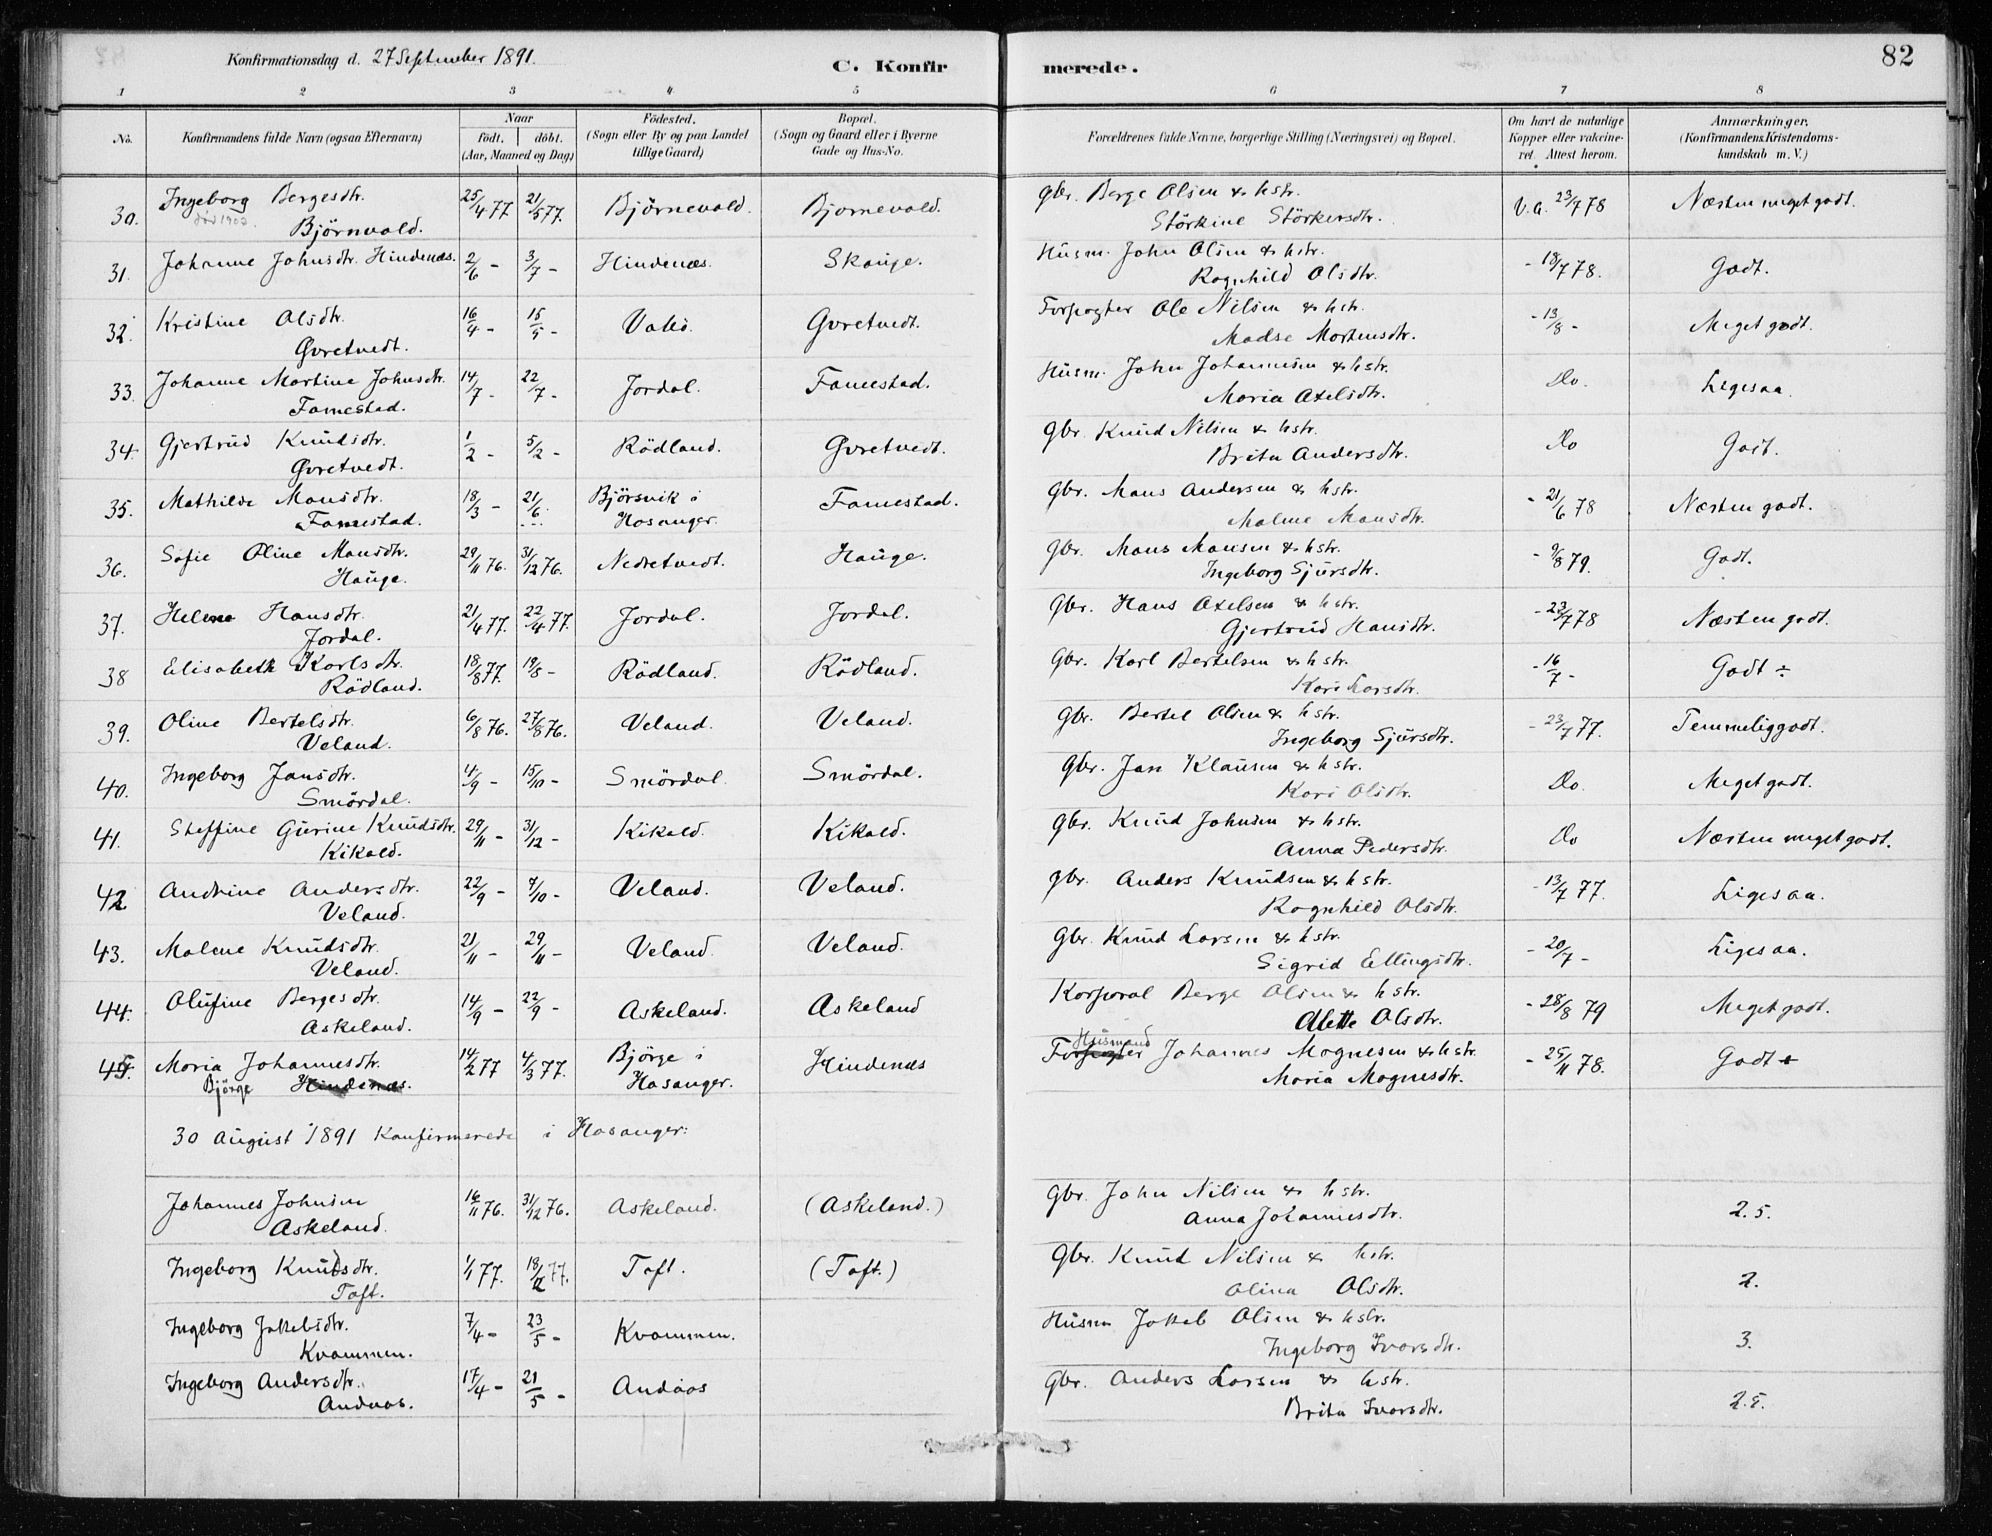 Konfirmationsdag d. 27 September 1891.
C. Konfirmerede.
82
1 2 3 4 5 6 7 8
No. Konfirmandens fulde Navn (ogsaa Efternavn) Naar født. døbt. (Aar, Maaned og Dag) Fødested. (Sogn eller By og paa Landet tillige Gaard) Bopæl. (Sogn og Gaard eller i Byerne Gade og Hus-No. Forældrenes fulde Navne, borgerlige Stilling (Næringsvei) og Bopæl. Om havt de naturlige Kopper eller vakcineret. Attest herom. Anmærkninger. (Konfirmandens Kristendomskundskab m. V.)
30. Ingeborg Bergesdtr. 25/4 77. 21/5 77. Bjørnevold. Bjørnevold. Gbr. Berge Olsen & hstr. V.A. 23/7 78 Næsten meget godt.
død 1902 Björnvold. Störkine Störkersdtr.
31. Johanne Johnsdtr. Hindenæs. 2/6 - 3/7 - Hindenæs. Skauge. Husm. John Olsen & hstr. - 18/7 78. Godt.
Ragnhild Olsdtr.
32. Kristine Olsdtr. 16/4 - 15/5 - Gvretvedt. Forpagter Ole Nilsen & hstr. - 13/8 - Meget godt.
Gvretvedt. Madse Mortensdtr.
33. Johanne Martine Johnsdtr. 14/7 - 22/7 - Jordal. Famestad. Husm. John Johannesen & hstr. Do. Ligesaa.
Famestad. Maria Axelsdtr.
34. Gjertrud Knudsdtr. 1/2 - 5/2 - Rödland. Gvretvedt. Gbr. Knud Nilsen & hstr. Do Godt.
Gvretvedt. Brita Andersdtr.
35. Mathilde Monsdtr. 18/3 - 21/6. Bjørsvik i Hosanger. Famestad. Gbr. Mons Andersen & hstr. - 21/6 78 Næsten godt.
Famestad. Malene Monsdtr.
36. Sofie Oline Monsdtr. 29/11 76. 31/12 76. Nedretvedt. Hauge. Gbr. Mons Monsen & hstr. - 9/8 79. Godt.
Hauge. Ingeborg Sjursdtr.
37. Helene Hansdtr. 21/4 77. 22/4 77. Jordal. Jordal. Gbr. Hans Axelsen & hstr. - 23/7 78 Næsten godt.
Jordal. Gjertrud Hansdtr.
38 Elisabeth Karlsdtr. 18/8 77. 19/8 - Rödland. Rödland. Gbr. Karl Bertelsen & hstr. - 16/7 - Godt ÷
Rödland. Kari Larsdtr.
39. Oline Bertelsdtr. 6/8 76. 27/8 76. Veland. Veland. Gbr. Bertel Olsen & hstr. - 23/7 77. Temmelig godt.
Veland. Ingeborg Sjursdtr.
40. Ingeborg Jansdtr. 4/9 - 15/10 - Smördal. Smördal. Gbr. Jan Klausen & hstr. Do. Meget godt.
Smördal. Kari Olsdtr.
41. Steffine Gurine Knudsdtr. 29/11 - 31/12 - Kikald. Kikald. Gbr. Knud Johnsen & hstr. Do Næsten meget godt.
Kikald. Anna Pedersdtr.
42 Andrine Andersdtr. 22/9 - 7/10 - Veland. Veland. Gbr. Anders Knudsen & hstr. - 13/7 77. Ligesaa.
Veland. Ragnhild Olsdtr.
43. Malene Knudsdtr. 21/11 - 29/11 - Veland. Veland. Gbr. Knud Larsen & hstr. - 20/7 - Ligesaa.
Veland. Sigrid Ellingsdtr.
44. Olufine Bergesdtr. 14/9 - 22/9 - Askeland. Askeland Korporal Berge Olsen & hstr. - 28/8 79 Meget godt.
Askeland. Alette Olsdtr.
45. Maria Johannesdtr. 14/2 77 4/3 77. Bjørge i Hosanger. Hindenæs Husmand Forpagter Johannes Mognesen & hstr. - 25/11 78. Godt +
Bjørge Hindenæs. Maria Mognesdtr.
30 August 1891 Konfirmerede i Hosanger:
Johannes Johnsen 16/11 76. 31/12 76. Askeland. (Askeland.) Gbr. John Nilsen & hstr. 2.5.
Askeland. Anna Johannesdtr.
Ingeborg Knudsdtr. 1/1 77. 18/2 77. Toft. (Toft.) Gbr. Knud Nilsen & hstr. 2.
Toft. Olina Olsdtr.
Ingeborg Jakobsdtr. 7/4 - 23/5 - Kvammen. Husm Jakob Olsen & hstr. 3.
Kvammen. Ingeborg Ivarsdtr.
Ingeborg Andersdtr. 17/4 - 21/5 - Andaas Gbr. Anders Larsen & hstr. 2.5.
Andaas. Brita Ivarsdtr.